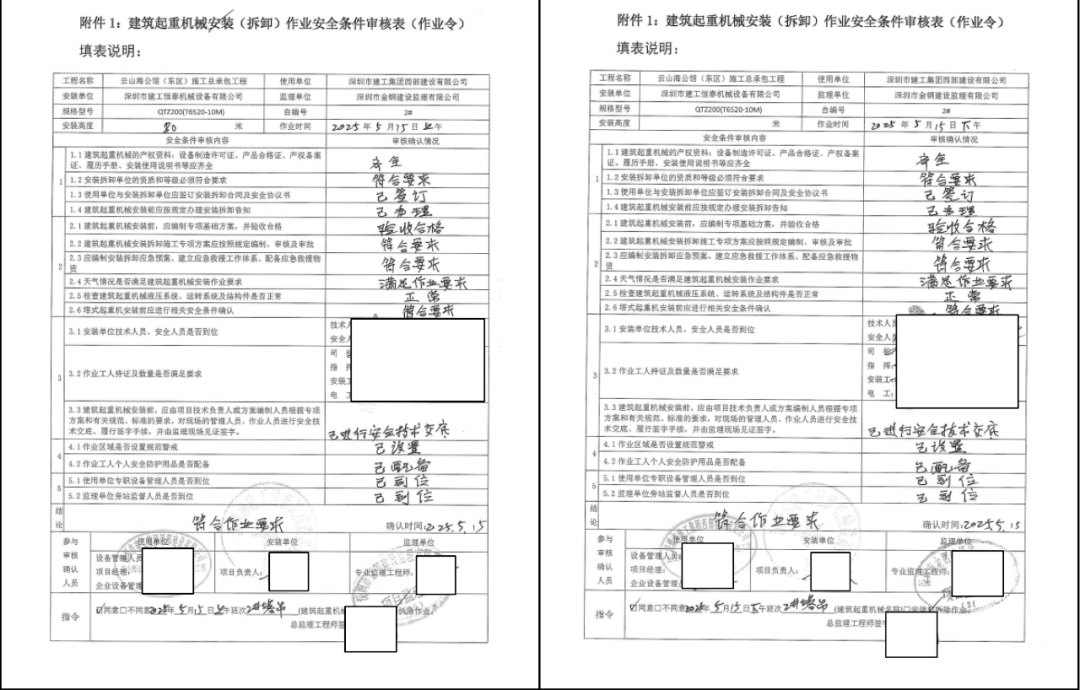 附件 1：建筑起重机械安装（拆卸）作业安全条件审核表（作业令）
填表说明：
工程名称 云山海公馆（东区）施工总承包工程 使用单位 深圳市建工集团西部建设有限公司
安装单位 深圳市建工恒泰机械设备有限公司 监理单位 深圳市金钢建设监理有限公司
规格型号 QTZ200(T6520-10M) 自编号 2#
安装高度 80 米 作业时间 2025年5月15日上午
安全条件审核内容 审核确认情况
1
1.1 建筑起重机械的产权资料：设备制造许可证、产品合格证、产权备案证、履历手册、安装使用说明书等应齐全 齐全
1.2 安装拆卸单位的资质和等级必须符合要求 符合要求
1.3 使用单位与安装拆卸单位应签订安装拆卸合同及安全协议书 已签订
1.4 建筑起重机械安装前应按规定办理安装拆卸告知 已办理
2
2.1 建筑起重机械安装前，应编制专项基础方案，并验收合格 验收合格
2.2 建筑起重机械安装拆卸施工专项方案应按照规定编制、审核及审批 符合要求
2.3 应编制安装拆卸应急预案、建立应急救援工作体系、配备应急救援物资 符合要求
2.4 天气情况是否满足建筑起重机械安装作业要求 满足作业要求
2.5 检查建筑起重机械液压系统、运转系统及结构件是否正常 正常
2.6 塔式起重机安装前应进行相关安全条件确认 符合要求
3
3.1 安装单位技术人员、安全人员是否到位 技术人
安全人
3.2 作业工人持证及数量是否满足要求 司
指
安装工
电 工：
3.3 建筑起重机械安装前，应由项目技术负责人或方案编制人员根据专项方案和有关规范、标准的要求，对现场的管理人员、作业人员进行安全技术交底、履行签字手续，并由监理现场见证签字。 已进行安全技术交底
4
4.1 作业区域是否设置规范警戒 已设置
4.2 作业工人个人安全防护用品是否配备 已配备
5
5.1 使用单位专职设备管理人员是否到位 已到位
5.2 监理单位旁站监督人员是否到位 已到位
结论 符合作业要求 确认时间：2025.5.15
参与审核确认人员
使用单位 安装单位 监理单位
设备管理人员
项目经理：
企业设备管
项目负责人：
专业监理工程师：
指令 ☑同意□不同意2025年5月15日上午班次2#塔吊（建筑起重机 拆除作业。
总监理工程师签
附件 1：建筑起重机械安装（拆卸）作业安全条件审核表（作业令）
填表说明：
工程名称 云山海公馆（东区）施工总承包工程 使用单位 深圳市建工集团西部建设有限公司
安装单位 深圳市建工恒泰机械设备有限公司 监理单位 深圳市金钢建设监理有限公司
规格型号 QTZ200(T6520-10M) 自编号 2#
安装高度 米 作业时间 2025年5月15日下午
安全条件审核内容 审核确认情况
1
1.1 建筑起重机械的产权资料：设备制造许可证、产品合格证、产权备案证、履历手册、安装使用说明书等应齐全 齐全
1.2 安装拆卸单位的资质和等级必须符合要求 符合要求
1.3 使用单位与安装拆卸单位应签订安装拆卸合同及安全协议书 已签订
1.4 建筑起重机械安装前应按规定办理安装拆卸告知 已办理
2
2.1 建筑起重机械安装前，应编制专项基础方案，并验收合格 验收合格
2.2 建筑起重机械安装拆卸施工专项方案应按照规定编制、审核及审批 符合要求
2.3 应编制安装拆卸应急预案、建立应急救援工作体系、配备应急救援物资 符合要求
2.4 天气情况是否满足建筑起重机械安装作业要求 满足作业要求
2.5 检查建筑起重机械液压系统、运转系统及结构件是否正常 正常
2.6 塔式起重机安装前应进行相关安全条件确认 符合要求
3
3.1 安装单位技术人员、安全人员是否到位 技术人
安全人
3.2 作业工人持证及数量是否满足要求 司
指
安装工
电 工：
3.3 建筑起重机械安装前，应由项目技术负责人或方案编制人员根据专项方案和有关规范、标准的要求，对现场的管理人员、作业人员进行安全技术交底、履行签字手续，并由监理现场见证签字。 已进行安全技术交底
4
4.1 作业区域是否设置规范警戒 已设置
4.2 作业工人个人安全防护用品是否配备 已配备
5
5.1 使用单位专职设备管理人员是否到位 已到位
5.2 监理单位旁站监督人员是否到位 已到位
结论 符合作业要求 确认时间：2025.5.15
参与审核确认人员
使用单位 安装单位 监理单位
设备管理人
项目经理：
企业设备管
项目负责人：
专业监理工程师：
指令 ☑同意□不同意2025年5月15日下午班次2#塔吊（建筑起重机械名称）□安装 拆除作业。
总监理工程师签